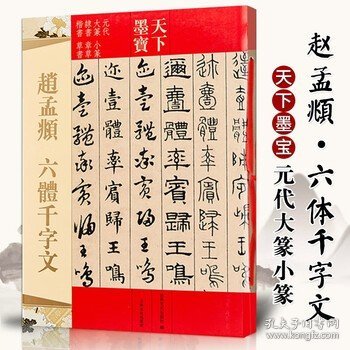 赵孟頫·六体千字文
天下墨宝
元代大篆小篆
天下
墨寶
元代
大篆 小篆
隸書 章草
楷書 草書
邇壹體率賓歸王
邇壹體率賓歸王
邇壹體率賓歸王
邇壹體率賓歸王鳴
邇壹體率賓歸王鳴
邇壹體率賓歸王鳴
趙孟頫 六體千字文
孔夫子旧书网